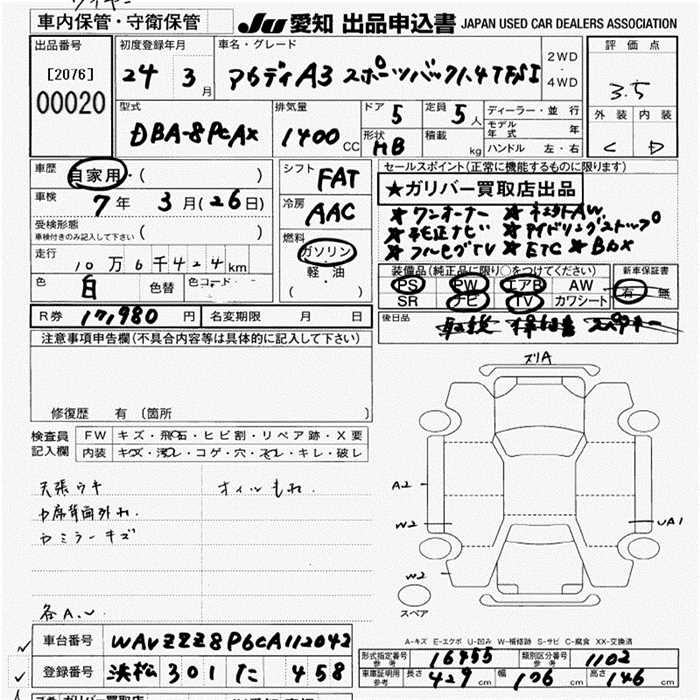 車内保管・守衛保管
JU 愛知 出品申込書 JAPAN USED CAR DEALERS ASSOCIATION
出品番号 [2076] 00020
初度登録年月 24 3月
車名・グレード アウディA3 スポーツバック1.4TFSI
2WD・4WD
評価点 3.5
外装 C 内装 D
型式 DBA-8PCAX
排気量 1400cc
ドア 5 定員 5人
形状 HB 積載 kg
ディーラー・並行
モデル年式 年
ハンドル 左・右
車歴 自家用・( )
車検 7年 3月(26日)
受検形態 車検付きのみ記入して下さい ( )
走行 10万6千424km
色 白 色替 色コード
シフト FAT
冷房 AAC
燃料 ガソリン・軽・油 ( )
セールスポイント(正常に機能するものに限ります)
★ガリバー買取店出品
★ワンオーナー
★純正ナビ ★アイドリングストップ
★フルセグTV ★ETC ★BOX
装備品(純正品に限り○をつけてください)
PS PW エアB AW
SR ナビ TV カワシート
新車保証書 有・無
後日品
R券 17,980円 名変期限 月 日
注意事項申告欄(不具合内容等は具体的に記入して下さい)
修復歴 有 [箇所 ]
検査員記入欄
FW キズ・飛石・ヒビ割・リペア跡・X要
内装 キズ・汚れ・コゲ・穴・スレ・キレ・破レ
天張ウキ オイルもれ.
カ席背面外れ.
カミラーキズ
各A.U
ズリA
A2
W2
UA1
W2
スペア
A-キズ E-エクボ U-凹み W-補修跡 S-サビ C-腐食 XX-交換済
車台番号 WAUZZZ8P6CA112042
登録番号 浜松 301 た 458
形式指定番号 参考 16455 類別区分番号 参考 1102
車庫証明用 参考 長さ 429cm 幅 176cm 高さ 146cm